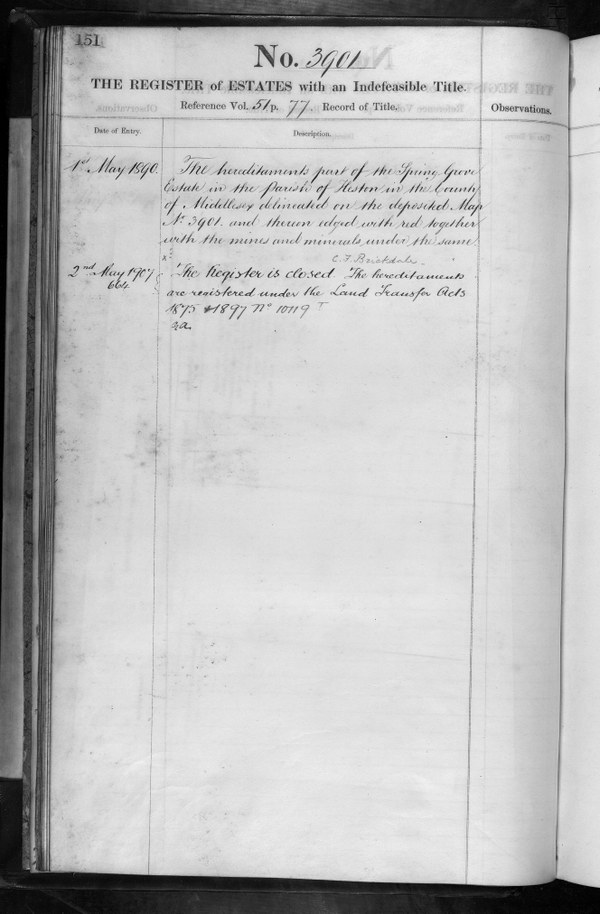 151
No. 3901
THE REGISTER of ESTATES with an Indefeasible Title.
Reference Vol. 51 p. 77. Record of Title.
Observations.
Date of Entry.
Description.
1st May 1890.
The hereditaments part of the Spring Grove
Estate in the Parish of Heston in the County
of Middlesex delineated on the deposited Map
No. 3901. and thereon edged with red together
with the mines and minerals under the same
C. F. Brickdale.
2nd May 1907
664
The Register is closed The hereditaments
are registered under the Land Transfer Acts
1875 & 1897 No 10119